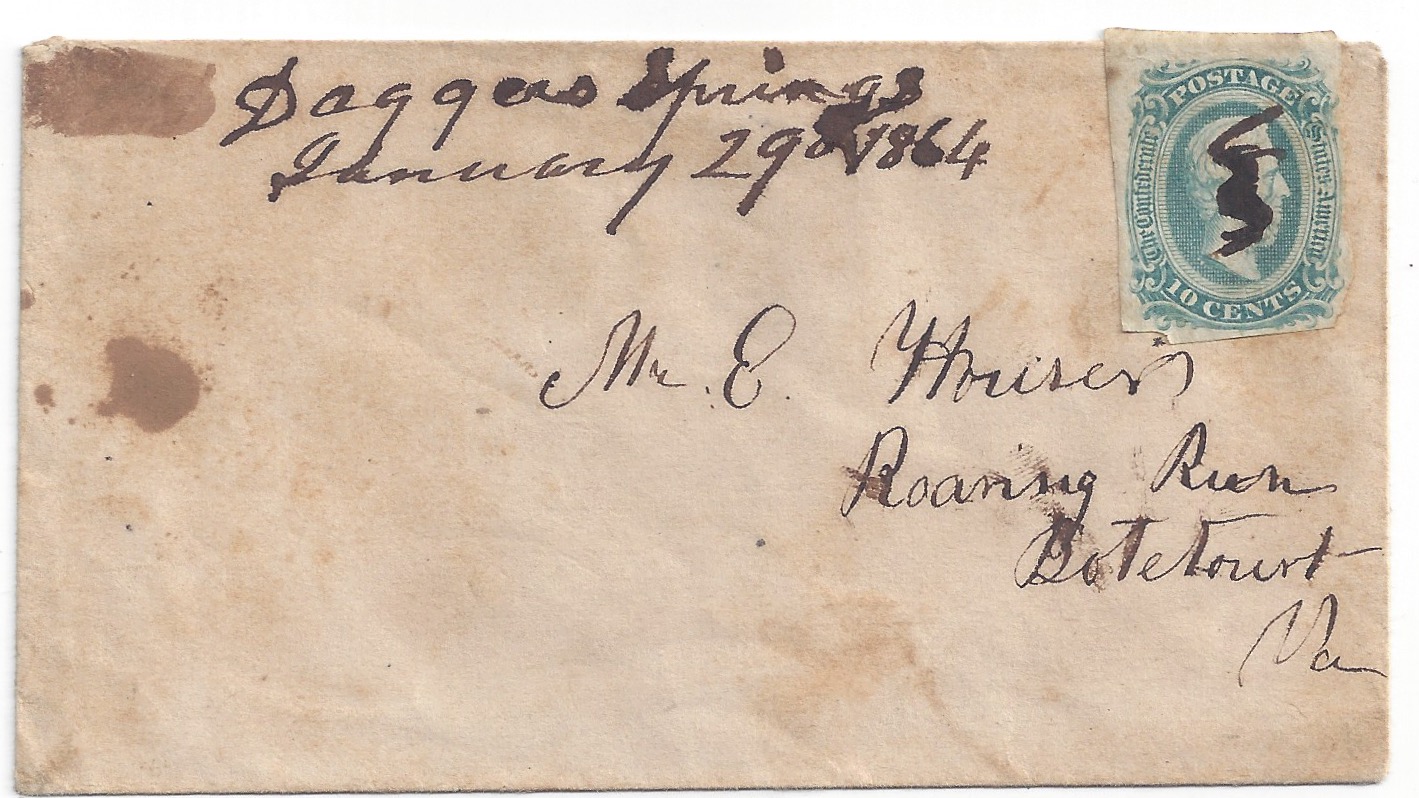 Daggers Springs
January 29th 1864
POSTAGE
The Confederate States of America
10 CENTS
Mr. E. Houser
Roaring Run
Botetourt
Va